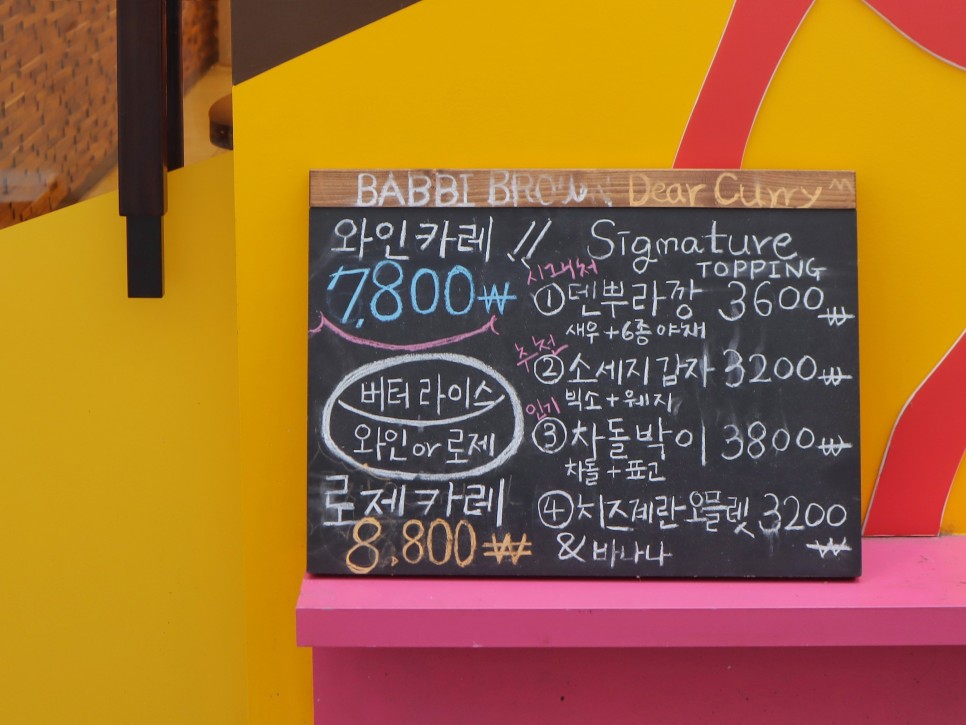 BABBI BROWN Dear Curry ^^
와인카레 !!
7,800₩
버터라이스
와인or로제
로제카레
8.800₩
Signature
TOPPING
시그니처
① 덴뿌라깡 3600₩
새우+6종야채
추천
② 소세지감자 3200₩
빅소+웨지
인기
③ 차돌박이 3800₩
차돌+표고
④ 치즈계란오믈렛 3200₩
& 바나나